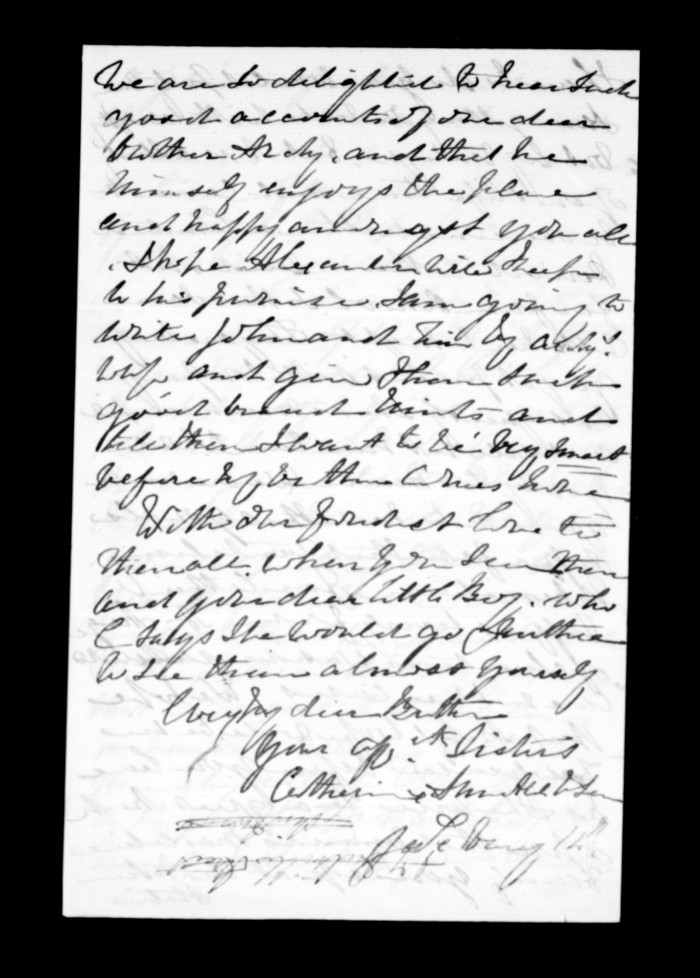 We are so delighted to hear such
good accounts of our dear
brother Archy, and that he
himself enjoys the place
and happy amongst you all
. I hope Alexander will keep
to his promise I am going to
write John and him by Archy's
wife and give them such
good broad hints and
tell them I want to be very smart
before my brother comes home
With our fondest love to
them all. when you see them
and your dear little Boy. who
C says she would go further
to see than almost yourself
Ever my dear Brother
Your aff. Sisters
Catherine &